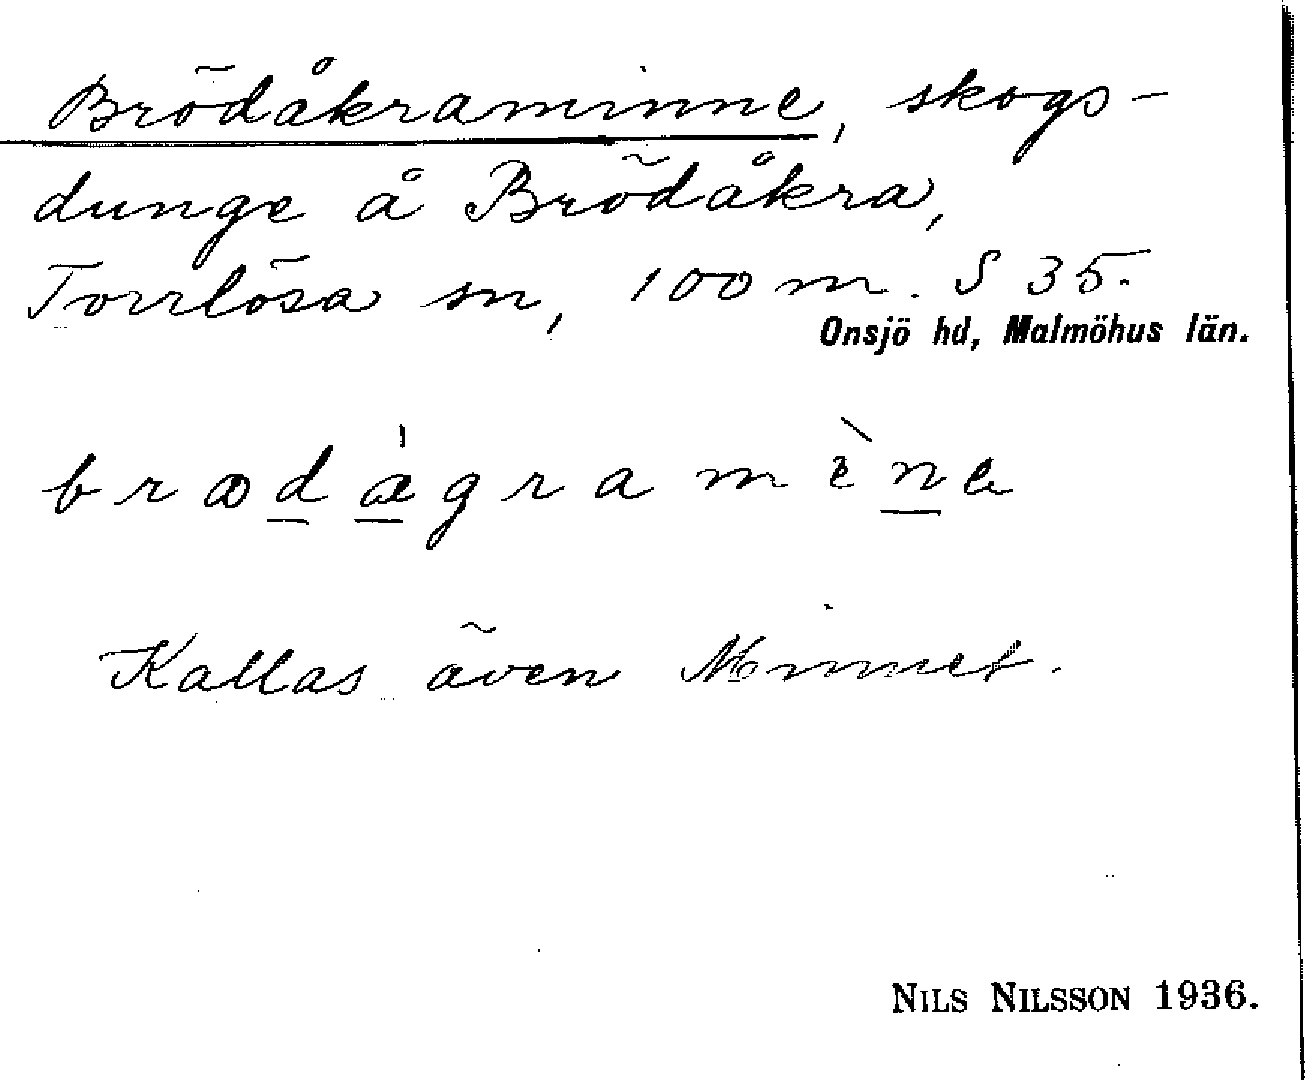 Brödåkraminne, skogs-
dunge å Brödåkra,
Torrlösa sn, 100 m. S 35.
Onsjö hd, Malmöhus län.
brødágramènə
Kallas även Minnet.
NILS NILSSON 1936.